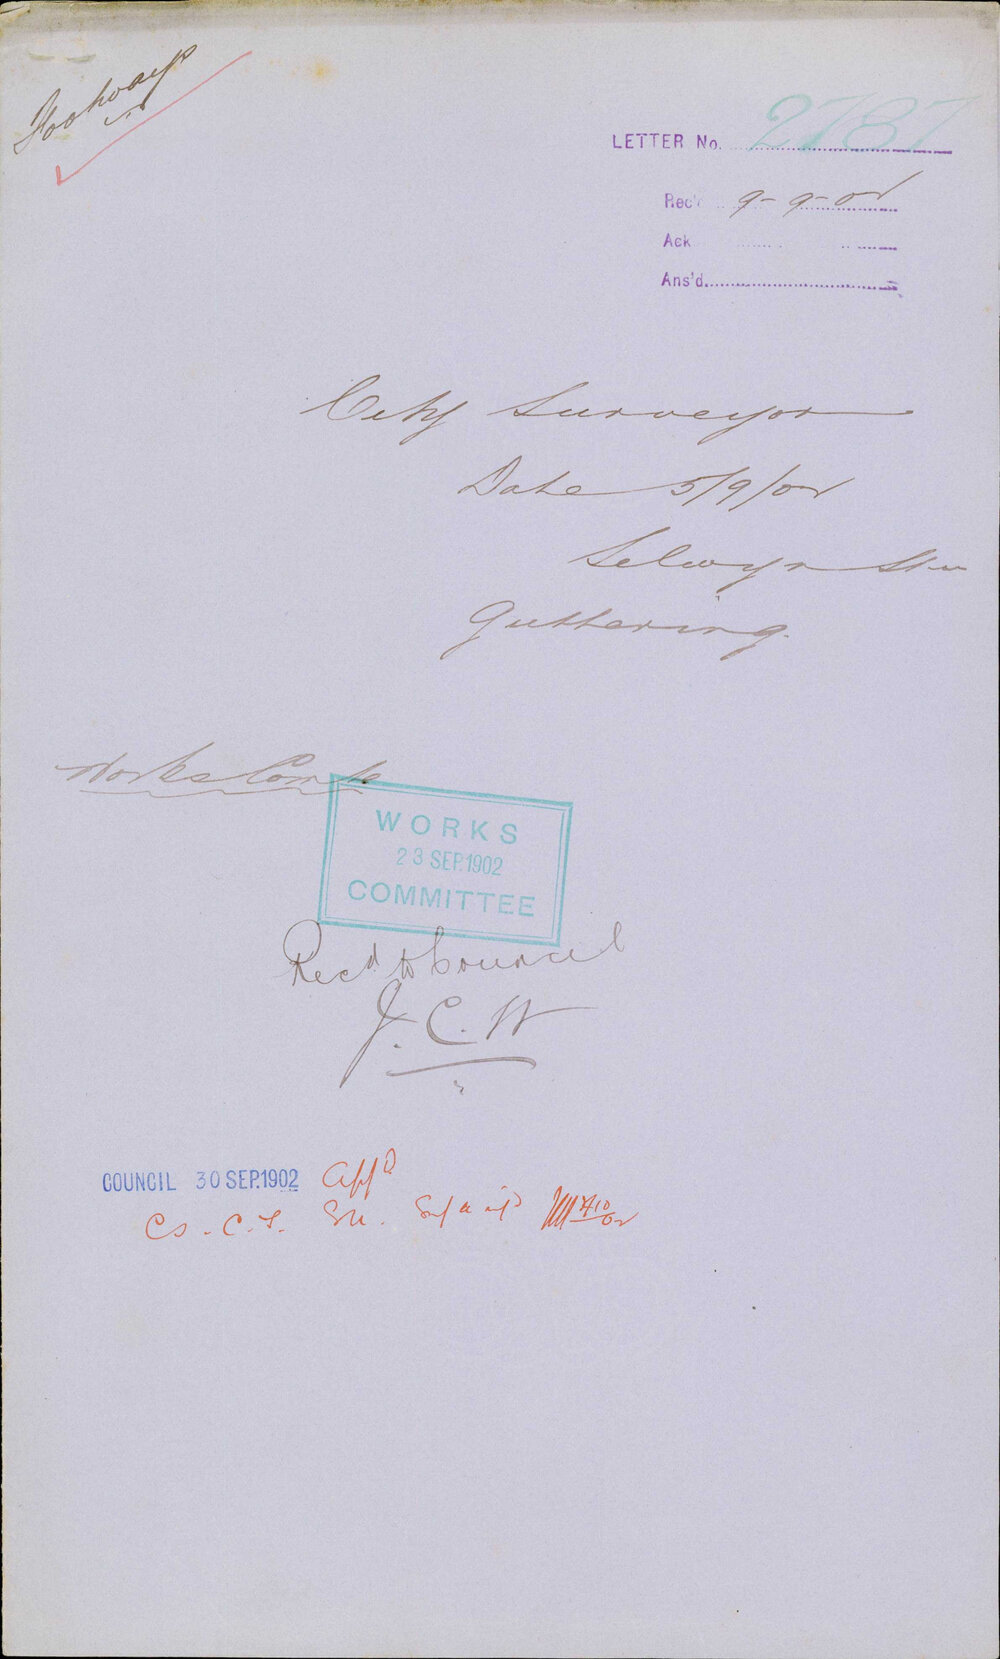 Footways
LETTER No. 2787
Rec'd 9-9-02
Ack
Ans'd
City Surveyor
Date 5/9/02
Selwyn St
Guttering.
Works Comte
WORKS
23 SEP. 1902
COMMITTEE
Recd to Council
J. C. W
COUNCIL 30 SEP. 1902 Appd
Cs. C.T.